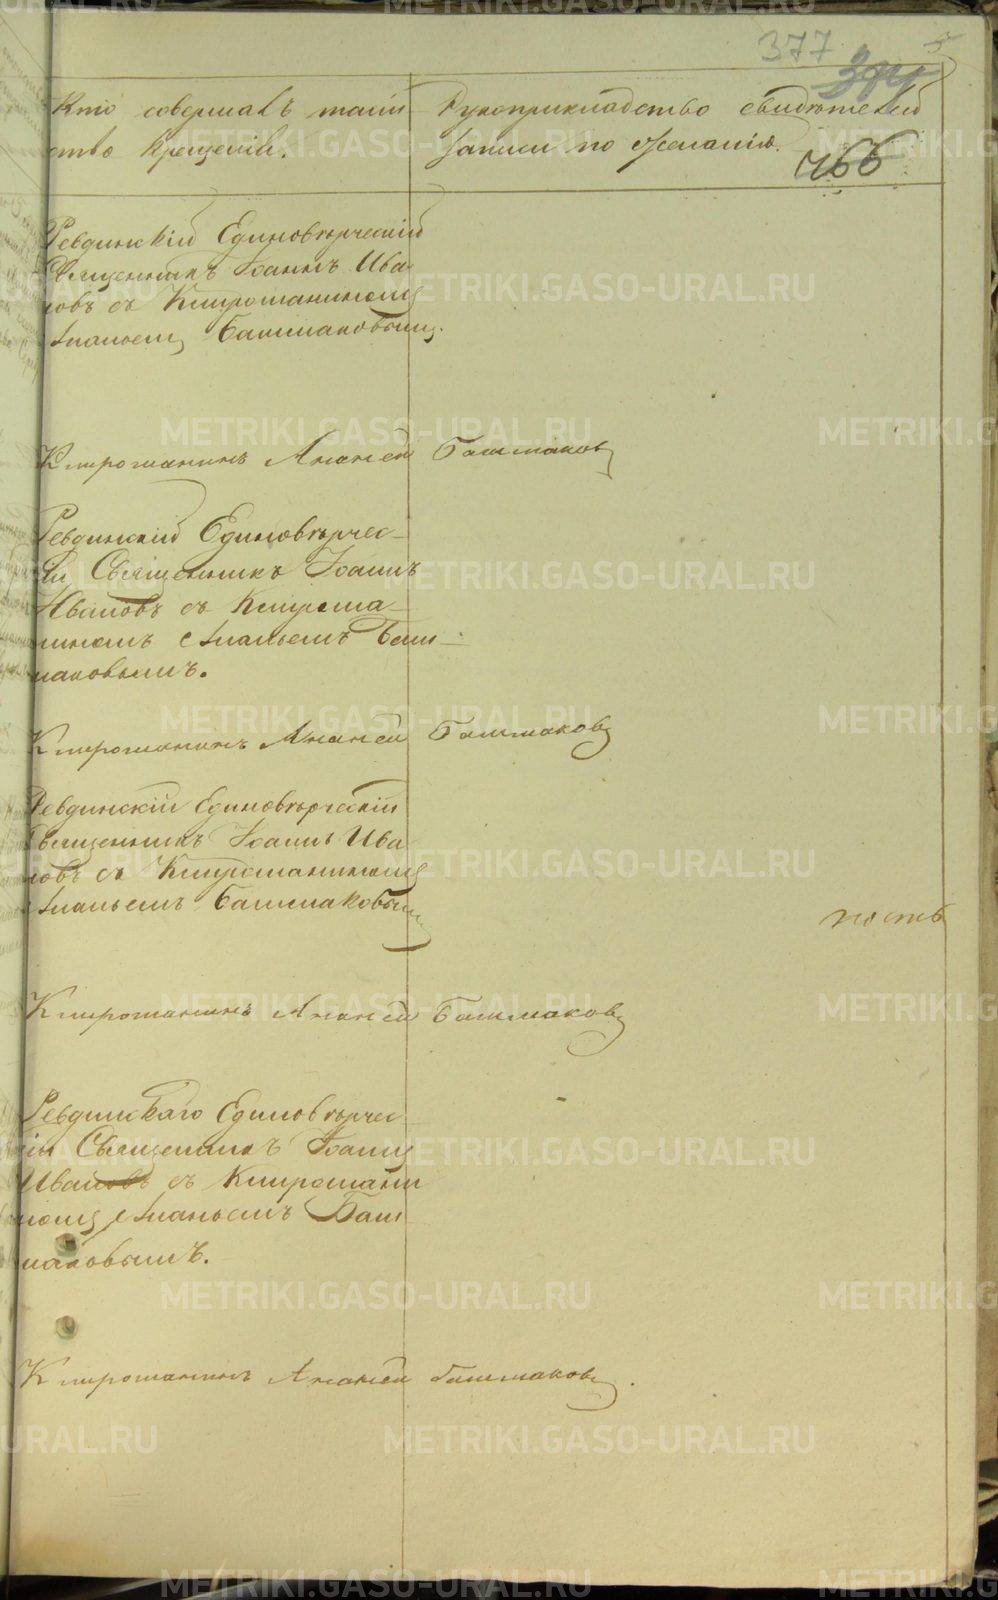 377
384
466
Кто совершалъ таин
ство Крещенія.
Рукоприкладство свидѣтелей
записи по желанію.
Ревдинскій Единовѣрческій
Священникъ Іоаннъ Ива
новъ съ К. Мрошанинымъ
Ананьемъ Башмаковымъ.
Ананей Башмаковъ
Ревдинскій Единовѣрчес-
кій Священникъ Іоаннъ
Ивановъ съ
Ананьемъ Баш-
маковымъ.
Ананей Башмаковъ
Ревдинскій Единовѣрческій
Священникъ Іоаннъ Ива
новъ съ
Ананьемъ Башмаковым
Ананей Башмаковъ
Ревдинскаго Единовѣрчес
кій Священникъ Іоаннъ
Ивановъ съ
Ананьемъ Баш
маковымъ.
Ананей Башмаковъ.
METRIKI.GASO-URAL.RU